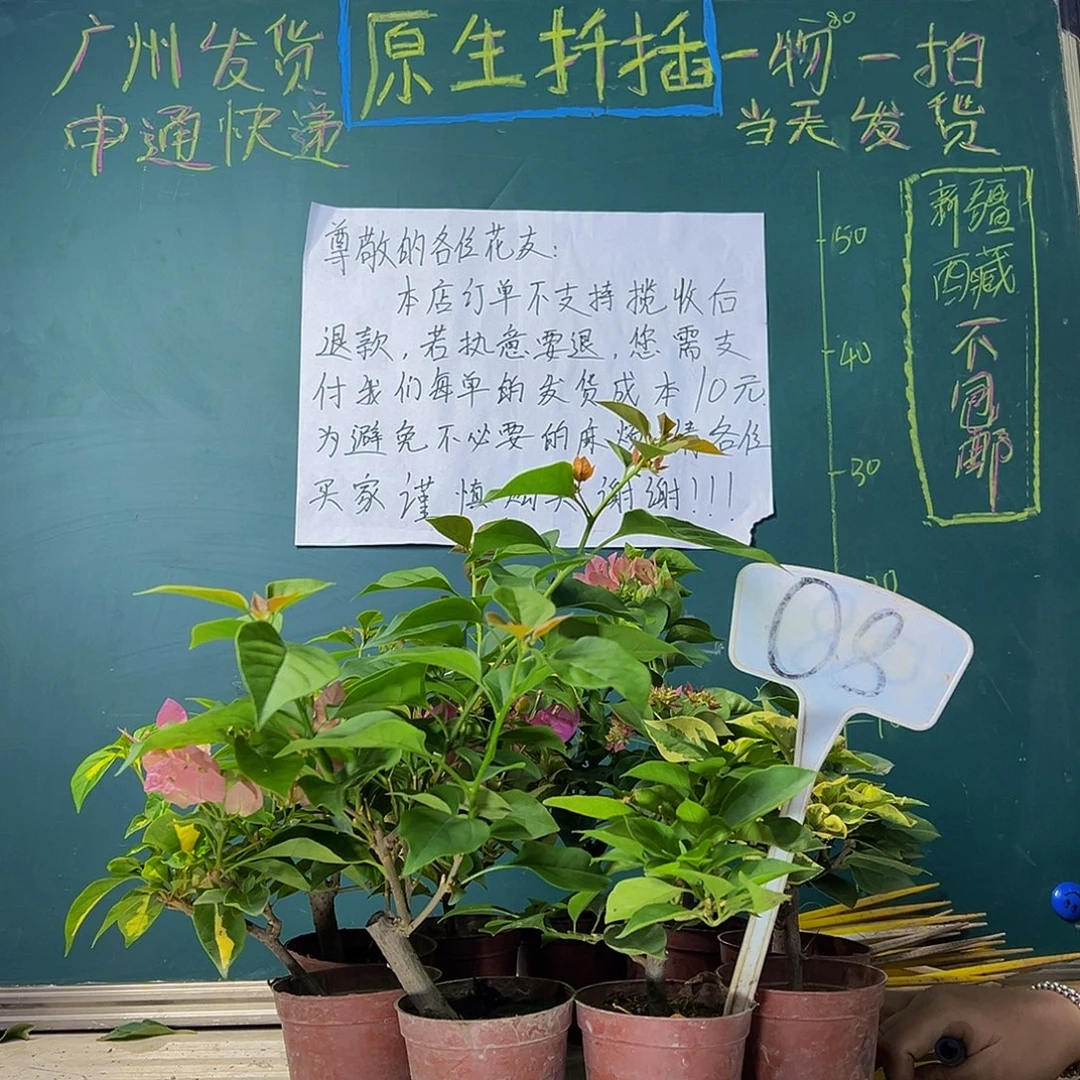 广州发货
原生扦插
一物一拍
80
申通快递
当天发货
尊敬的各位花友:
本店订单不支持揽收后
退款,若执意要退,您需支
付我们每单的发货成本10元.
为避免不必要的麻烦 请各位
买家谨慎购买 谢谢!!!
50
40
30
20
新疆
西藏
不包邮
03